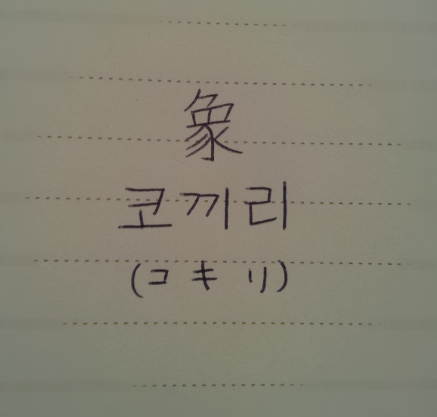 象
코끼리
(コ キ リ)